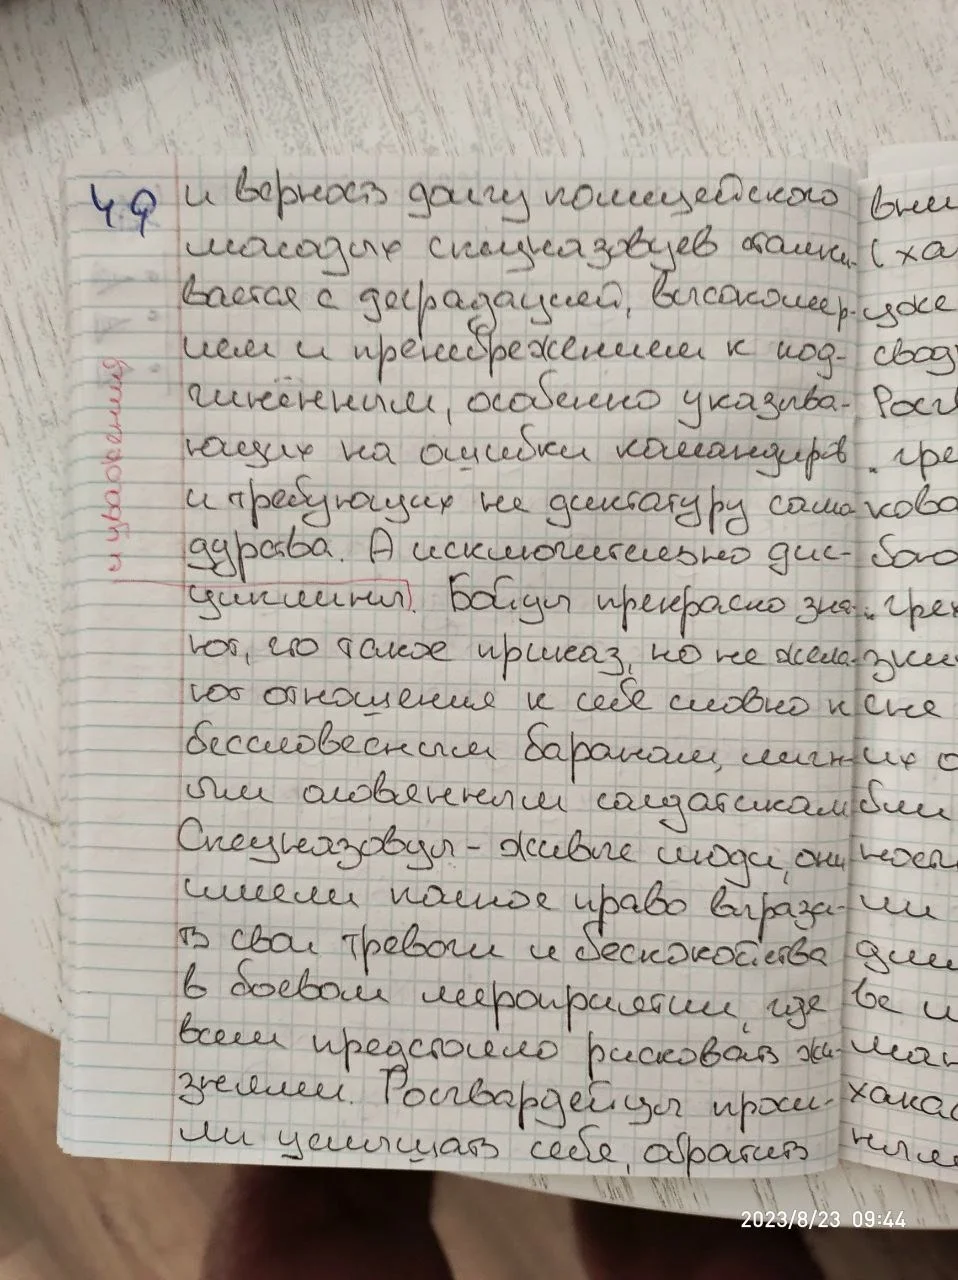 49
и верность долгу полицейского
молодых спецназовцев сталки-
вается с деградацией, высокомер-
ием и пренебрежением к под-
чинённым, особенно указыва-
ющих на ошибки командиров
и требующих не диктатуру само
дурства. А исключительно дис-
циплины. Бойцы прекрасно зна-
ют, что такое приказ, но не жела-
ют отношения к себе словно к
бессловесным баранам, личн-
ым оловянным солдатикам
Спецназовцы - живые люди, они
имели полное право выража-
ть свои тревоги и беспокойства
в боевом мероприятии, где
всем предстояло рисковать жи-
знями. Росгвардейцы проси-
ли услышать себя, обратить
и уважения
вни
(ха
уже
свод
Росг
гре
кова
бого
грех
зки
сне
их о
бли
ност
ли
дли
ве и
ман
хакас
2023/8/23 09:44